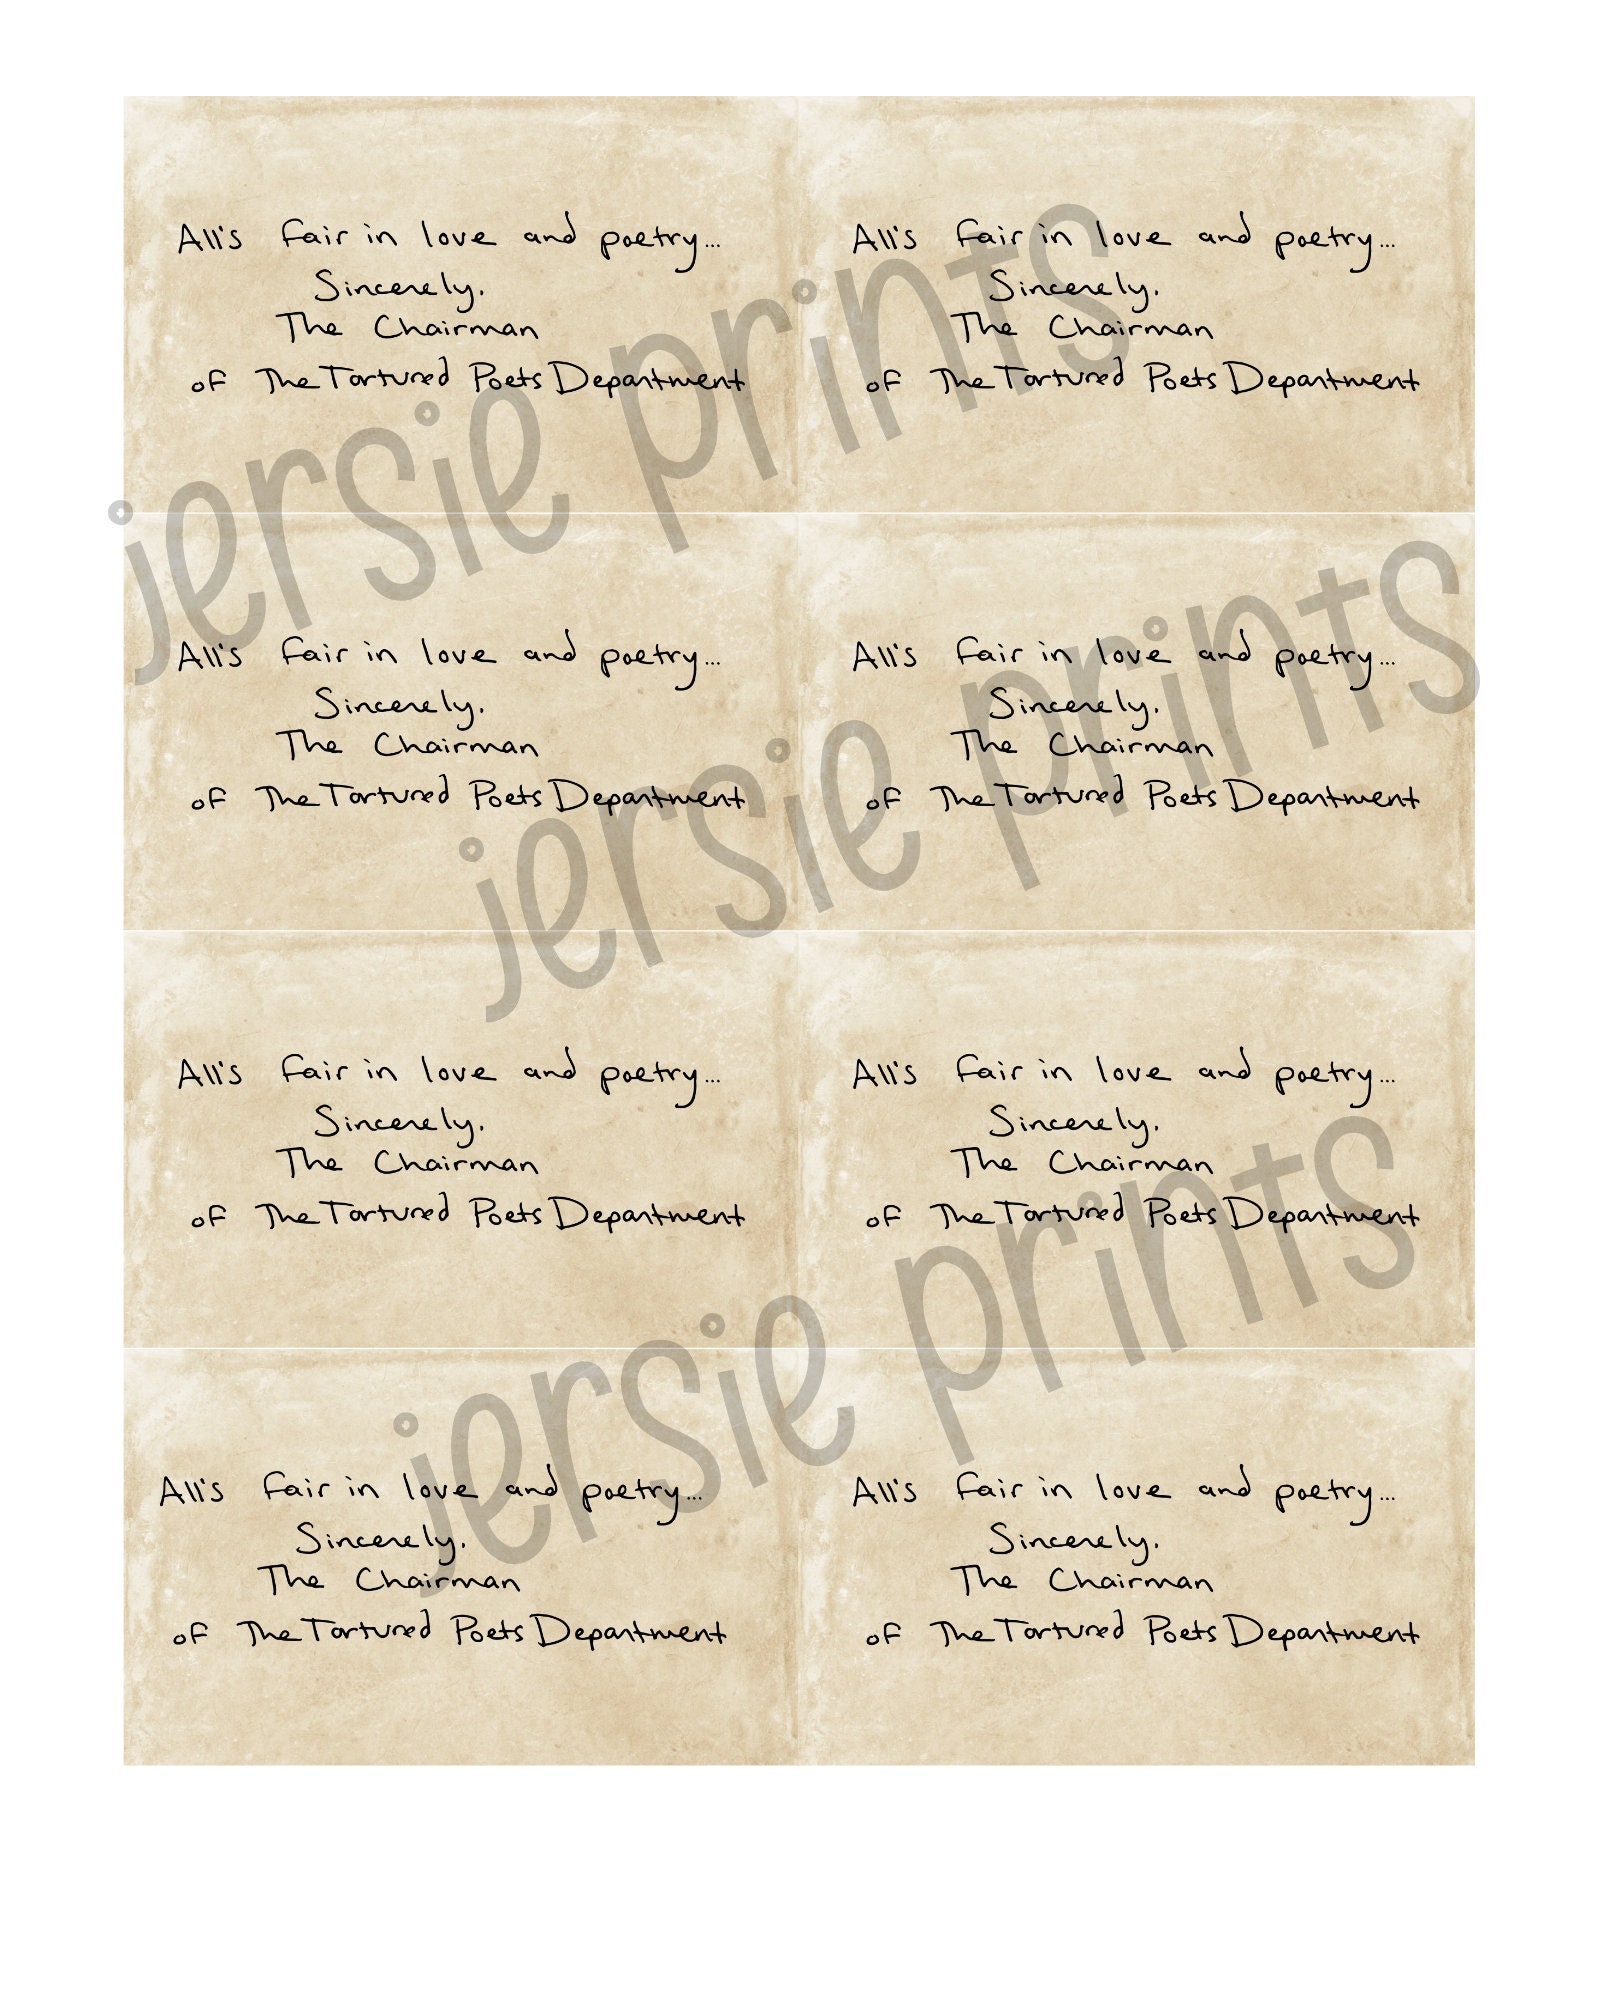 All's fair in love and poetry...
Sincerely.
The Chairman
of The Tortured Poets Department
All's fair in love and poetry...
Sincerely.
The Chairman
of The Tortured Poets Department
jersie prints
All's fair in love and poetry...
Sincerely.
The Chairman
of The Tortured Poets Department
All's fair in love and poetry...
Sincerely.
The Chairman
of The Tortured Poets Department
jersie prints
All's fair in love and poetry...
Sincerely.
The Chairman
of The Tortured Poets Department
All's fair in love and poetry...
Sincerely.
The Chairman
of The Tortured Poets Department
jersie prints
All's fair in love and poetry...
Sincerely.
The Chairman
of The Tortured Poets Department
All's fair in love and poetry...
Sincerely.
The Chairman
of The Tortured Poets Department